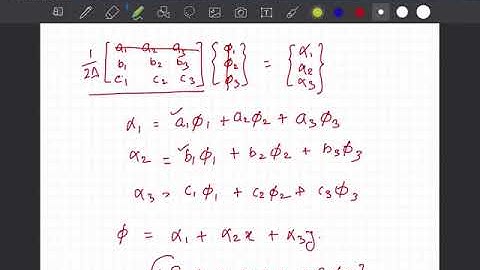 1/2Δ [a₁ a₂ a₃ b₁ b₂ b₃ c₁ c₂ c₃] {ϕ₁ ϕ₂ ϕ₃} = {α₁ α₂ α₃}
α₁ = a₁ϕ₁ + a₂ϕ₂ + a₃ϕ₃
α₂ = b₁ϕ₁ + b₂ϕ₂ + b₃ϕ₃
α₃ = c₁ϕ₁ + c₂ϕ₂ + c₃ϕ₃
ϕ = α₁ + α₂x + α₃y.